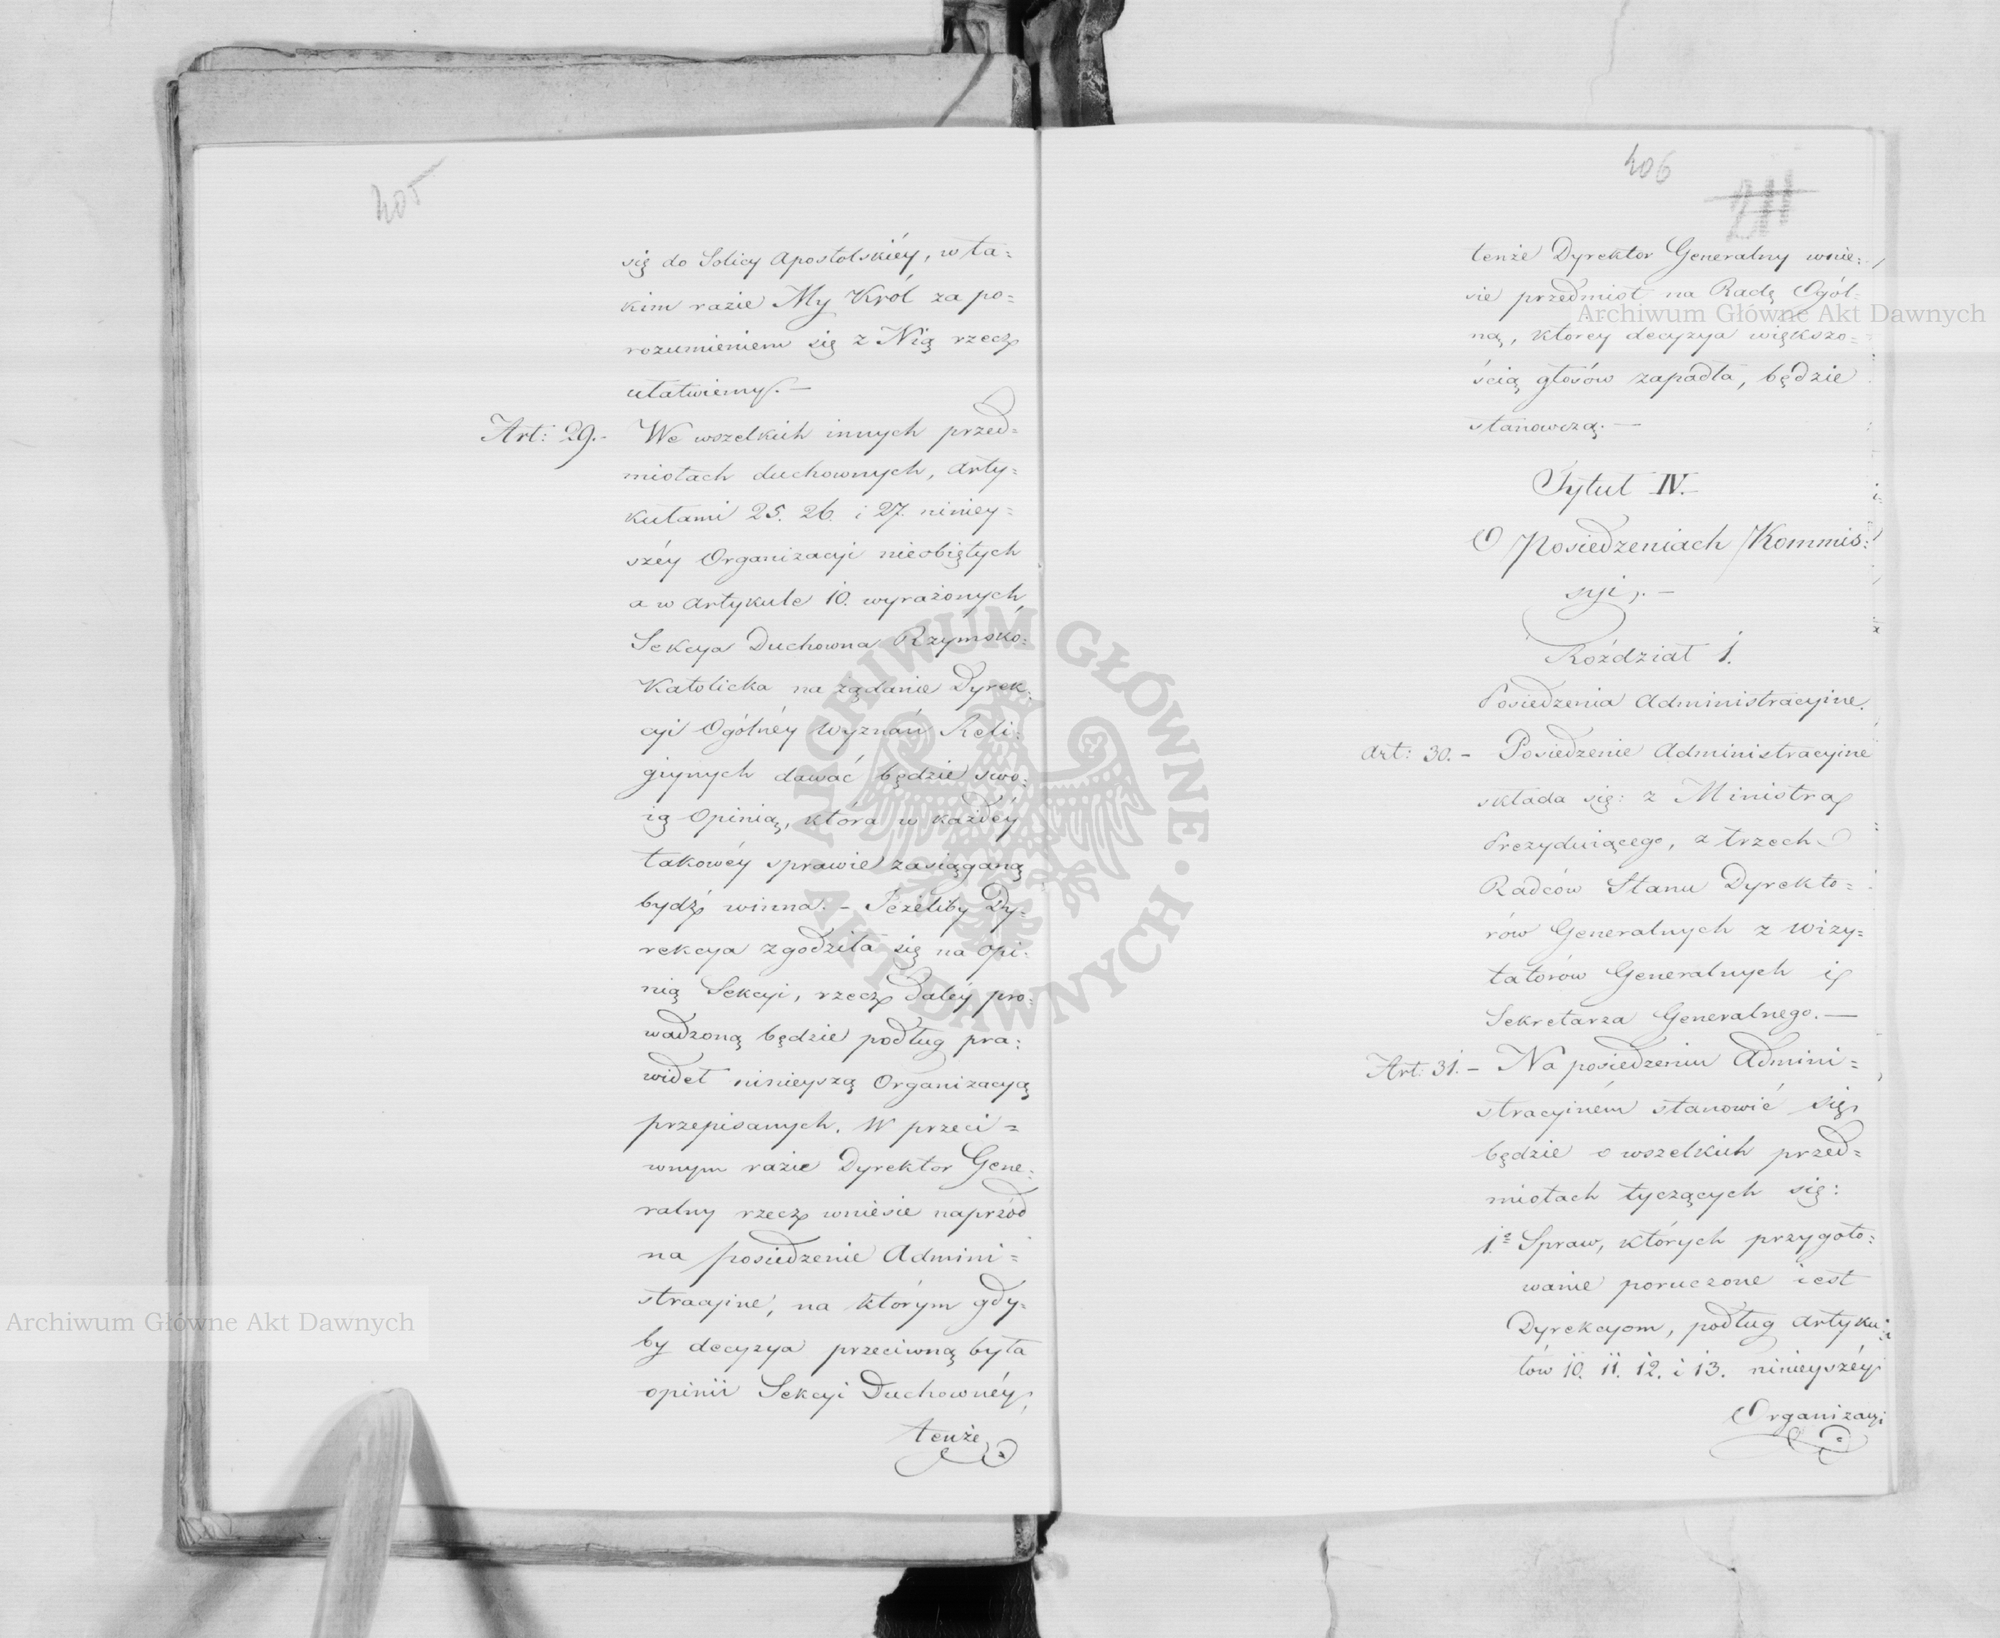 405
się do Stolicy Apostolskiéy, w ta=
kim razie My Król za po=
rozumieniem się z Nią rzecz
ułatwiemy. —
Art: 29.- We wszelkich innych przed=
miotach duchownych, Arty=
kułami 25. 26. i 27. niniey=
széy Organizacyi nieobiętych
a w Artykule 10. wyrażonych
Sekcya Duchowna Rzymsko=
Katolicka na żądanie Dyrek=
cyi Ogólnéy Wyznań Reli=
giynych dawać będzie swo=
ią Opinią, która w każdéy
takowéy sprawie zasiąganą
bydź winna. — Jeżeliby Dy=
rekcya zgodziła się na opi=
nią Sekcyi, rzecz daléy pro=
wadzoną będzie podług pra=
wideł ninieyszą Organizacyą
przepisanych. W przeci=
wnym razie Dyrektor Gene=
ralny rzecz wniesie naprzód
na posiedzenie Admini=
stracyine, na którym gdy=
by decyzya przeciwną była
opinii Sekcyi Duchownéy,
tenże
406
211
tenże Dyrektor Generalny wnie=
sie przedmiot na Radę Ogól=
ną, ktorey decyzya większo=
ścią głosów zapadła, będzie
stanowczą. —
Tytuł IV.—
O Posiedzeniach Kommis=
syi. —
Rozdział 1.
Posiedzenia Administracyine.
Art: 30. — Posiedzenie Administracyine
składa się: z Ministra
Prezyduiącego, z trzech
Radców Stanu Dyrekto=
rów Generalnych z Wizy=
tatorów Generalnych i
Sekretarza Generalnego. —
Art: 31. — Na posiedzeniu Admini=
stracyinem stanowić się
będzie o wszelkich przed=
miotach tyczących się:
1.º Spraw, których przygoto=
wanie poruczone iest
Dyrekcyom, podług Artyku=
łów 10. 11. 12. i 13. ninieyszéy
Organizacyi
Archiwum Główne Akt Dawnych
Archiwum Główne Akt Dawnych
ARCHIWUM GŁÓWNE AKT DAWNYCH